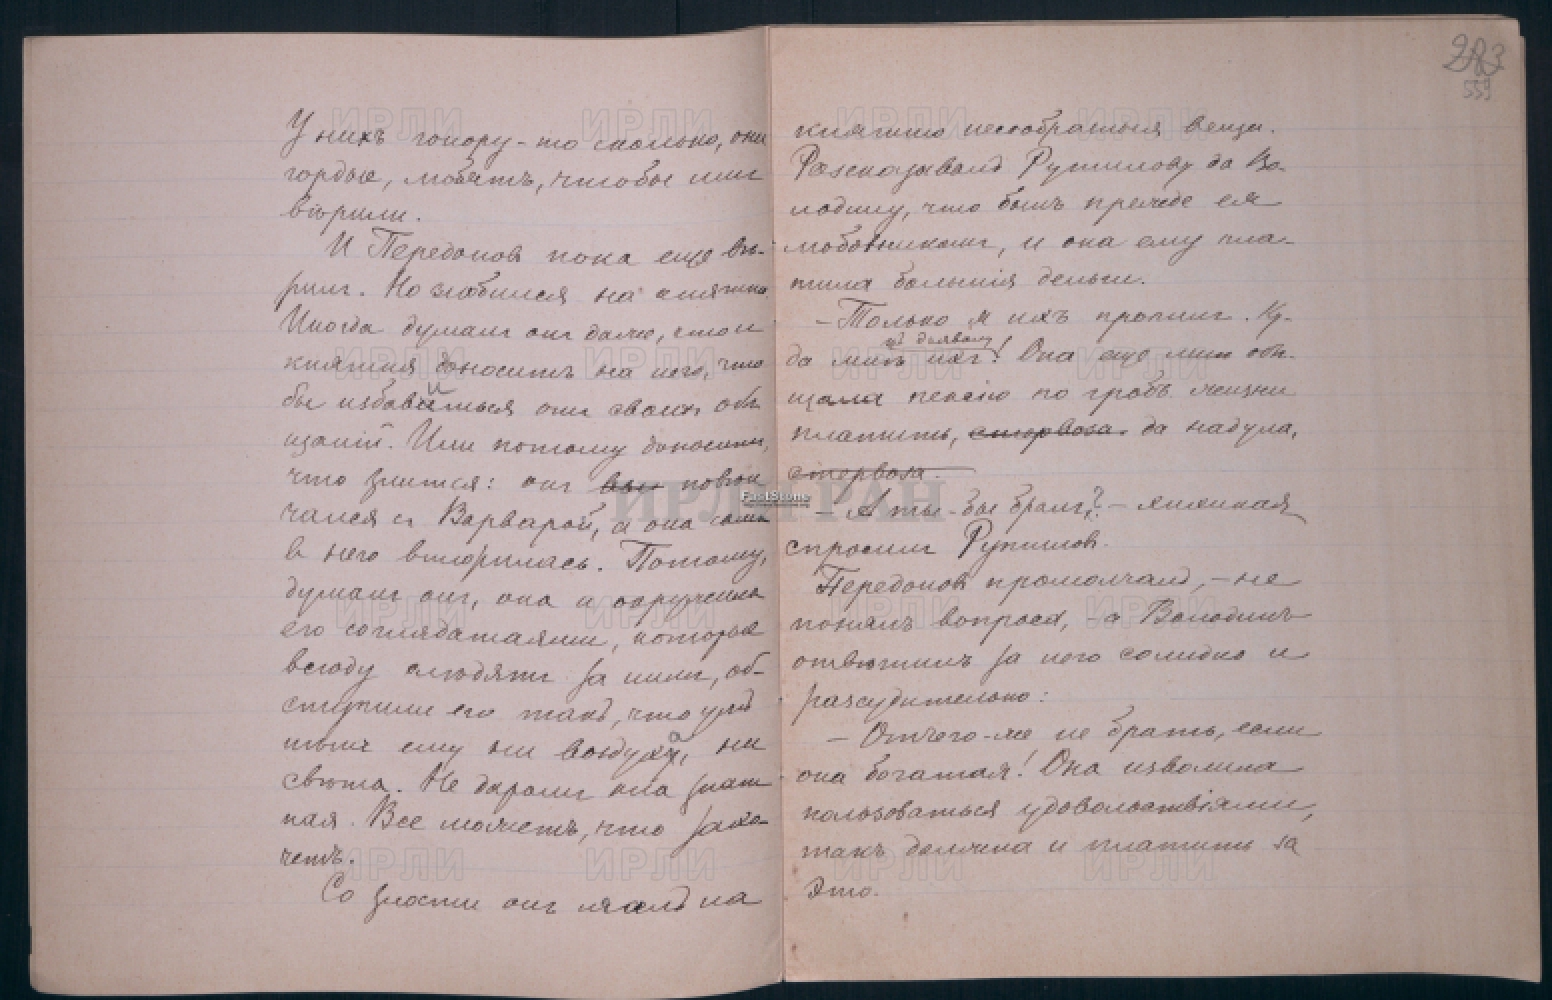 У нихъ гонору-то сколько, они
гордые, любятъ, чтобы имъ
вѣрили.
И Передонов пока еще вѣ-
рилъ. Но злобился на княгиню.
Иногда думалъ онъ даже, что и
княгиня доноситъ на него, что
бы избавиться отъ своихъ обѣ
щаній. Или потому доноситъ,
что злится: онъ повѣн
чался съ Варварой, а она сама
в него влюбилась. Потому,
думалъ онъ, она и окружила
его соглядатаями, которые
всюду слѣдятъ за нимъ, об-
ступили его такъ, что ужъ
нѣтъ ему ни воздуха, ни
свѣта. Не даромъ она знат
ная. Все можетъ, что захо-
четъ.
Со злости онъ лгалъ на
283
559
княгиню несообразныя вещи.
Разсказывалъ Рутилову да Во-
лодину, что былъ прежде ея
любовникомъ, и она ему пла-
тила большія деньги.
– Только я ихъ пропилъ. Ку-
къ дьяволу
да мнѣ ихъ! Она еще мнѣ обѣ-
щала пенсію по гробъ жизни
платить, стервоза да надула,
стервоза.
– А ты-бы бралъ? –
спросилъ Рутилов.
Передонов промолчалъ, – не
понялъ вопроса, – а Володинъ
отвѣтилъ за него солидно и
разсудительно:
– Отчего-же не брать, если
она богатая! Она изволила
пользоваться удовольствіями,
такъ должна и платить за
это.
ИРЛИ РАН
FastStone